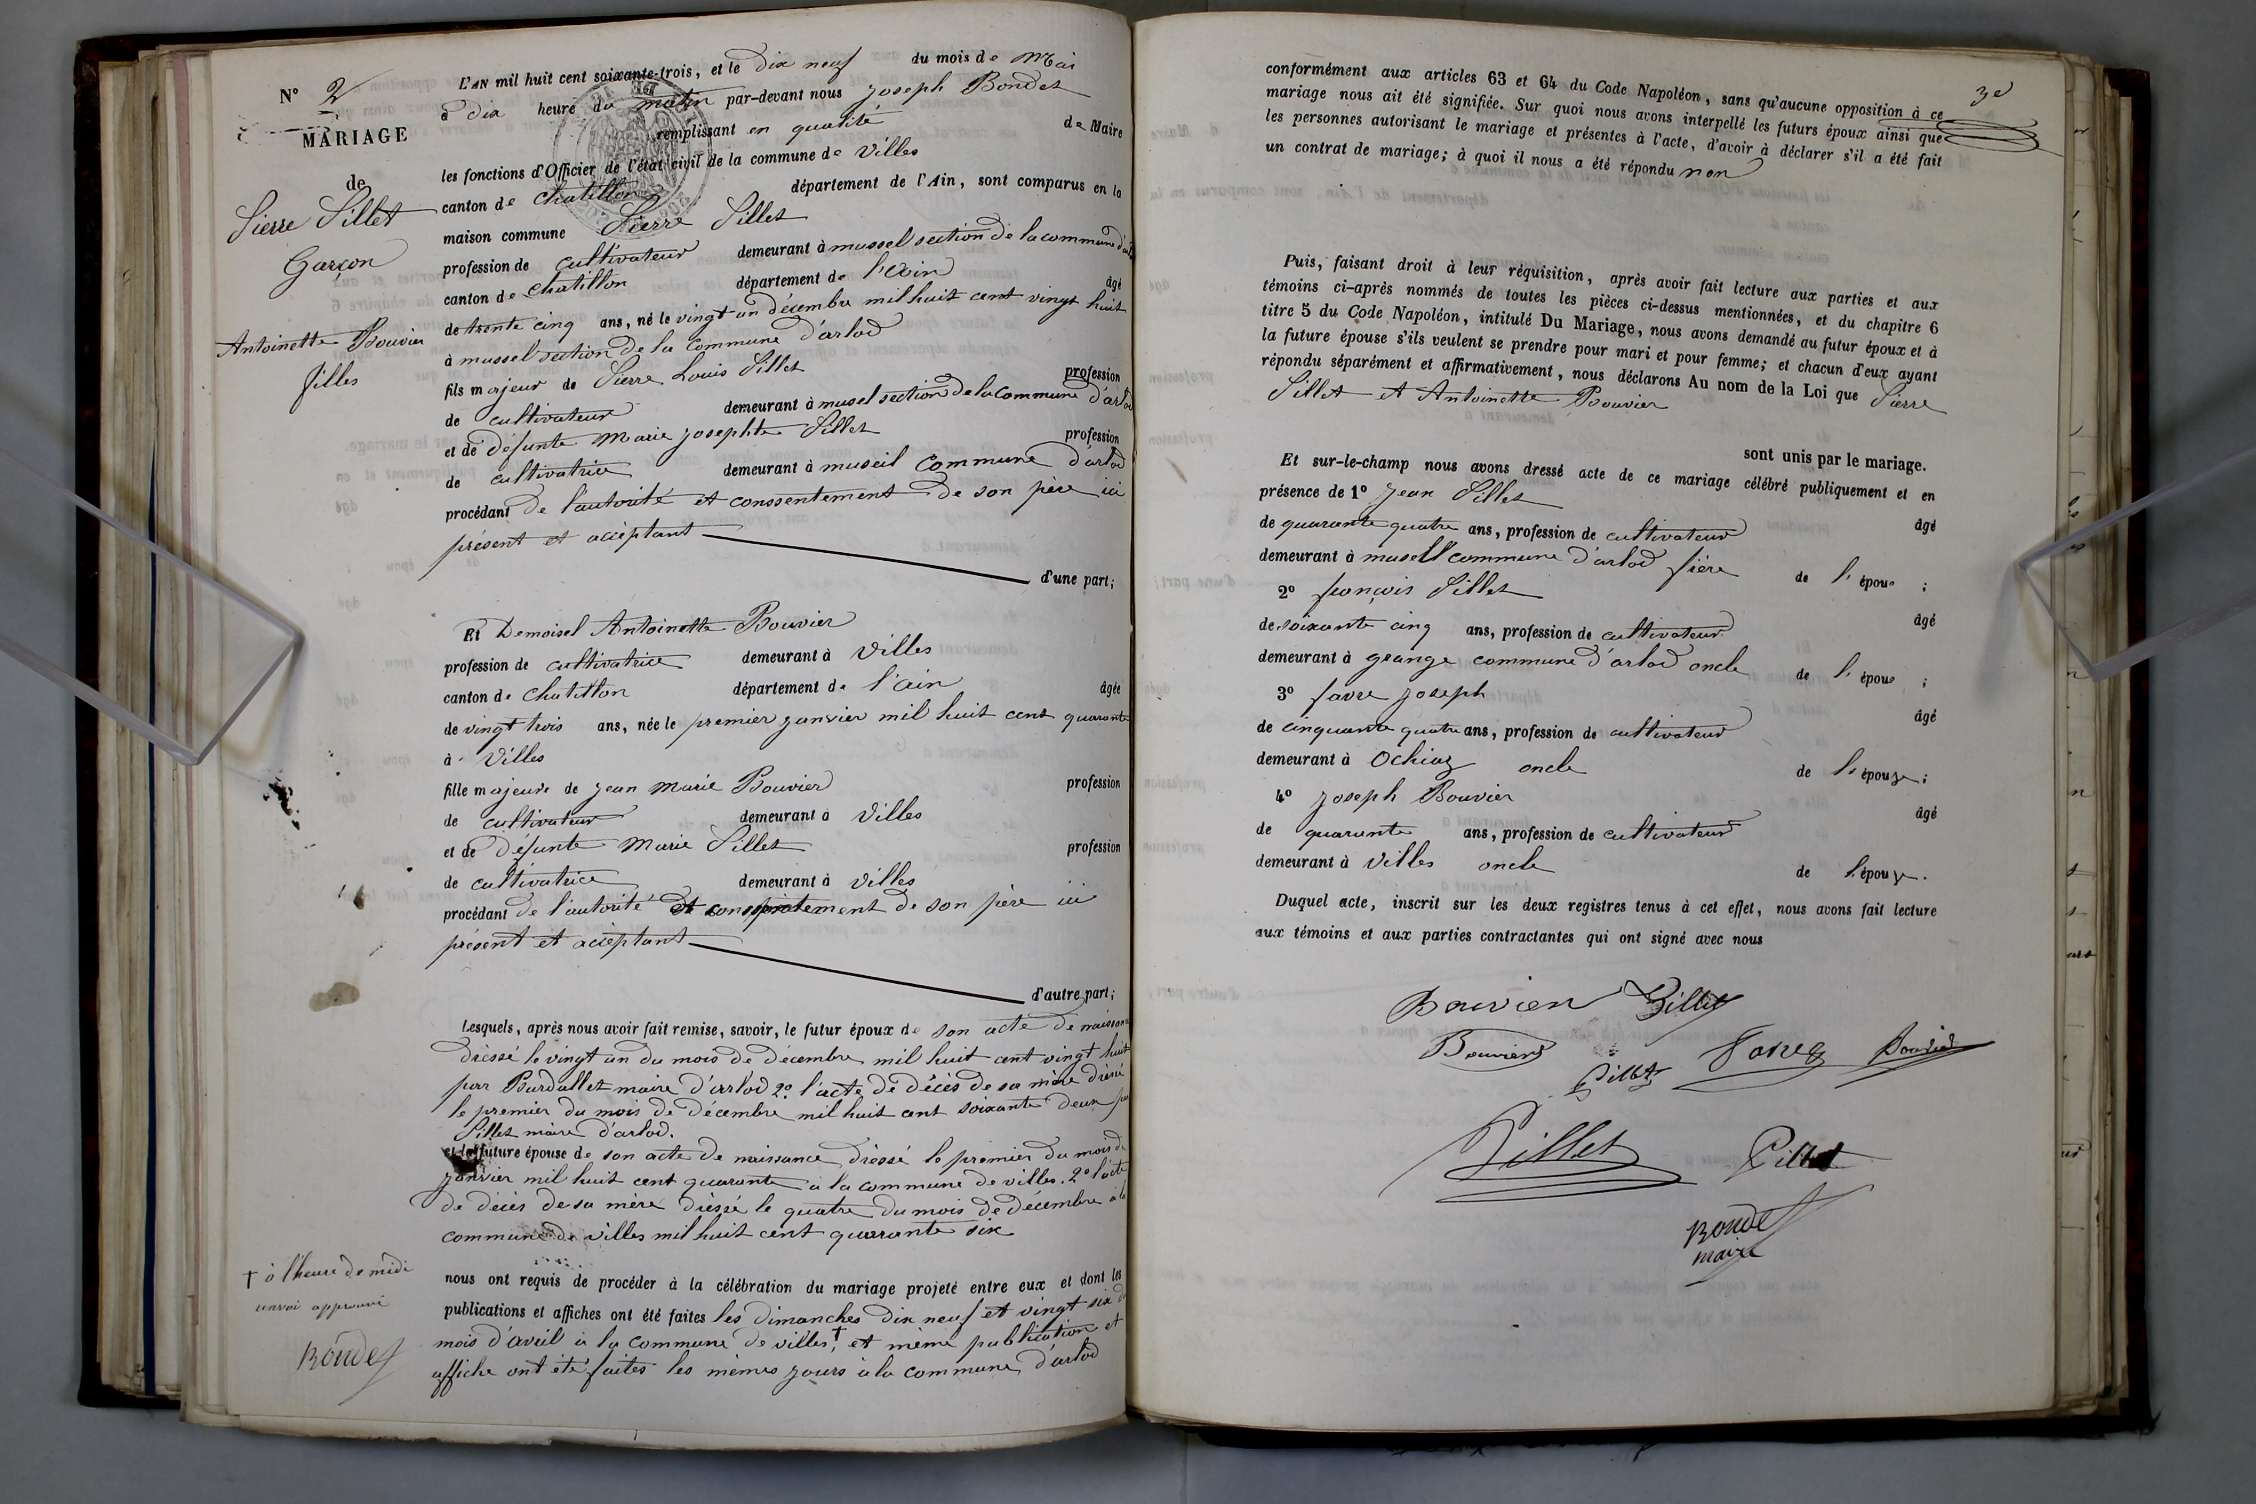 N° 2
MARIAGE
de
Pierre Pillet
Garçon
Antoinette Bouvier
filles
L'AN mil huit cent soixante-trois, et le dix neuf du mois de Mai
à dix heure du matin par-devant nous Joseph Bondet
remplissant en qualité de Maire
les fonctions d'Officier de l'état civil de la commune de Villes
canton de Chatillon département de l'Ain, sont comparus en la
maison commune Pierre Pillet
profession de cultivateur demeurant à mussel section de la commune
canton de Chatillon département de l'ain âgé
de trente cinq ans, né le vingt un décembre mil huit cent vingt huit
à mussel section de la commune d'arlod
fils majeur de Pierre Louis Pillet profession
de cultivateur demeurant à musel section de la commune d'arlod
et de défunte Marie Josephte Pillet profession
de cultivatrice demeurant à museil commune d'arlod
procédant de l'autorité et conssentement de son père ici
présent et acceptant
d'une part;
Et Demoisel Antoinette Bouvier
profession de cultivatrice demeurant à Villes
canton de Chatillon département de l'ain âgée
de vingt trois ans, née le premier janvier mil huit cent quarante
à Villes
fille majeure de Jean Marie Bouvier profession
de cultivateur demeurant à Villes
et de défunte Marie Pillet profession
de cultivatrice demeurant à Villes
procédant de l'autorité et conssentement de son père ici
présent et acceptant
d'autre part;
Lesquels, après nous avoir fait remise, savoir, le futur époux de son acte de naissance
dréssé le vingt un du mois de décembre mil huit cent vingt huit
par Burdallet maire d'arlod 2° l'acte de décès de sa mère dréssé
le premier du mois de décembre mil huit cent soixante deux par
Pillet maire d'arlod.
et la future épouse de son acte de naissance dréssé le premier du mois de
janvier mil huit cent quarante à la commune de villes. 2° l'acte
de décès de sa mère dréssé le quatre du mois de décembre à la
commune de villes mil huit cent quarante six
nous ont requis de procéder à la célébration du mariage projeté entre eux et dont les
publications et affiches ont été faites les dimanches dix neuf et vingt six du
mois d'avril à la commune de villes, † et même publication et
affiche ont été faites les mêmes jours à la commune d'arlod
† à l'heure de midi
renvoi approuvé
Bondet
conformément aux articles 63 et 64 du Code Napoléon, sans qu'aucune opposition à ce
mariage nous ait été signifiée. Sur quoi nous avons interpellé les futurs époux ainsi que
les personnes autorisant le mariage et présentes à l'acte, d'avoir à déclarer s'il a été fait
un contrat de mariage; à quoi il nous a été répondu non
Puis, faisant droit à leur réquisition, après avoir fait lecture aux parties et aux
témoins ci-après nommés de toutes les pièces ci-dessus mentionnées, et du chapitre 6
titre 5 du Code Napoléon, intitulé Du Mariage, nous avons demandé au futur époux et à
la future épouse s'ils veulent se prendre pour mari et pour femme; et chacun d'eux ayant
répondu séparément et affirmativement, nous déclarons Au nom de la Loi que Pierre
Pillet et Antoinette Bouvier
sont unis par le mariage.
Et sur-le-champ nous avons dressé acte de ce mariage célébré publiquement et en
présence de 1° Jean Pillet âgé
de quarante quatre ans, profession de cultivateur
demeurant à musell commune d'arlod frère de l'époux ;
2° françois Pillet âgé
de soixante cinq ans, profession de cultivateur
demeurant à grange commune d'arlod oncle de l'époux ;
3° favre Joseph âgé
de cinquante quatre ans, profession de cultivateur
demeurant à Ochiaz oncle de l'épouse ;
4° Joseph Bouvier âgé
de quarante ans, profession de cultivateur
demeurant à Villes oncle de l'épouse.
Duquel acte, inscrit sur les deux registres tenus à cet effet, nous avons fait lecture
aux témoins et aux parties contractantes qui ont signé avec nous
Bouvier Pillet
Bouvier Pillet Favre Bouvier
Pillet Pillet
Bondet
maire